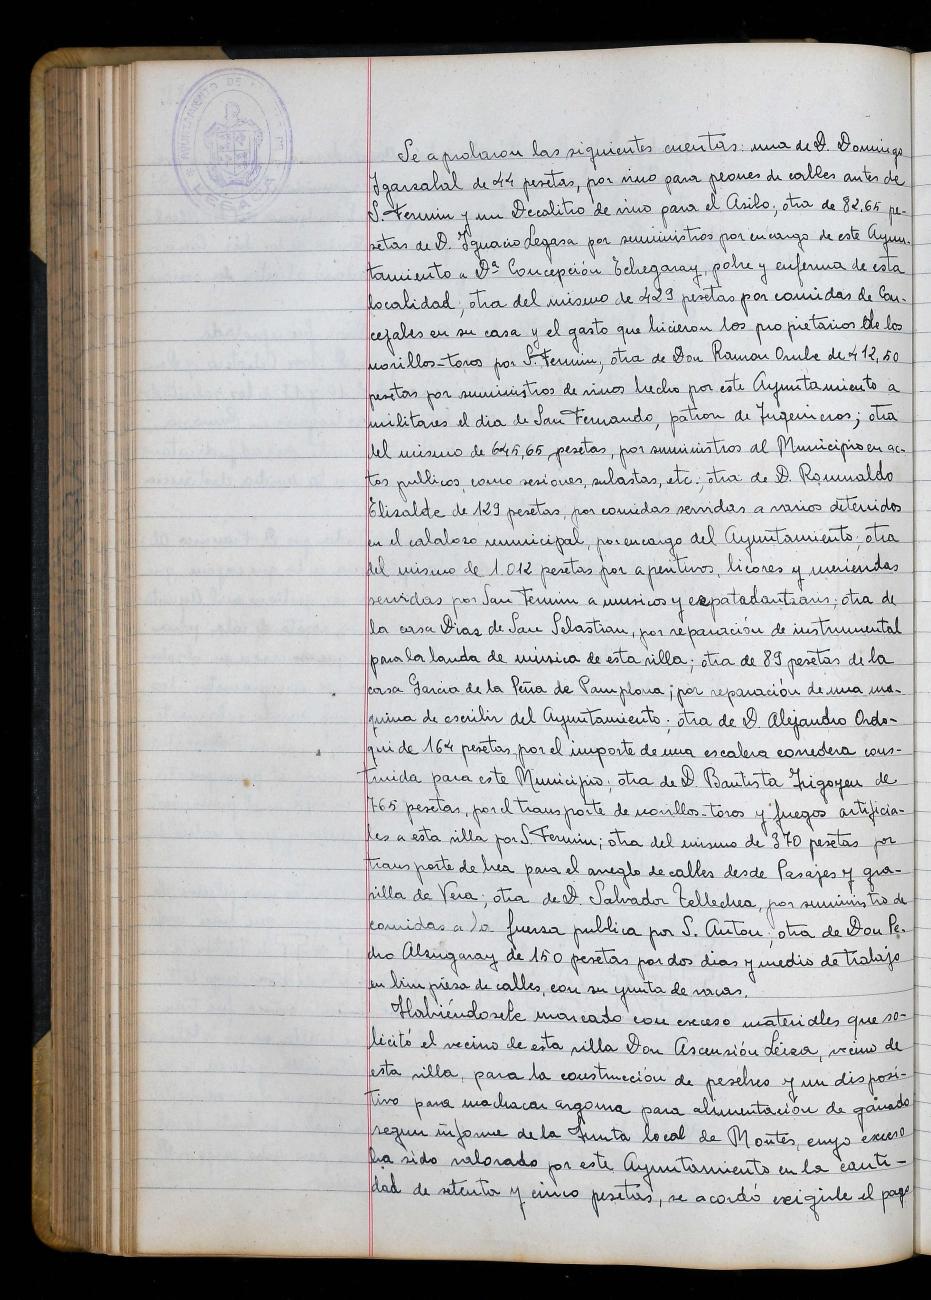 AYUNTAMIENTO DE
LESACA
Se aprobaron las siguientes cuentas: una de D. Domingo
Igarzabal de 44 pesetas, por vino para peones de calles antes de
S. Fermin y un Decalitro de vino para el Asilo; otra de 82.65 pe-
setas de D. Ignacio Legasa por suministros por encargo de este Ayun-
tamiento a Dª Concepción Echegaray, pobre y enferma de esta
localidad; otra del mismo de 429 pesetas por comidas de Con-
cejales en su casa y el gasto que hicieron los propietarios de los
novillos-toros por S. Fermin; otra de Don Ramon Orube de 412,50
pesetas por suministros de vinos hecho por este Ayuntamiento a
militares el dia de San Fernando, patron de Ingenieros; otra
del mismo de 645,65 pesetas, por suministros al Municipio en ac-
tos publicos, como sesiones, subastas, etc.; otra de D. Romualdo
Elizalde de 129 pesetas, por comidas servidas a varios detenidos
en el calabozo municipal, por encargo del Ayuntamiento; otra
del mismo de 1.012 pesetas por aperitivos, licores y meriendas
servidas por San Fermin a musicos y ezpatadantzaris; otra de
la casa Diaz de San Sebastian, por reparación de instrumental
para la banda de música de esta villa; otra de 89 pesetas de la
casa Garcia de la Peña de Pamplona; por reparación de una ma-
quina de escribir del Ayuntamiento; otra de D. Alejandro Ordo-
qui de 164 pesetas, por el importe de una escalera corredera cons-
truida para este Municipio; otra de D. Bautista Irigoyen de
765 pesetas, por el transporte de novillos-toros y fuegos artificia-
les a esta villa por S. Fermin; otra del mismo de 370 pesetas por
transporte de brea para el arreglo de calles desde Pasajes y gra-
villa de Vera; otra de D. Salvador Tellechea, por suministro de
comidas a la fuerza publica por S. Anton; otra de Don Pe-
dro Alzugaray de 150 pesetas por dos dias y medio de trabajo
en limpieza de calles, con su yunta de vacas.
Habiéndosele marcado con exceso materiales que so-
licitó el vecino de esta villa Don Ascensión Leiza, vecino de
esta villa, para la construcción de pesebres y un disposi-
tivo para machacar argoma para alimentación de ganado
segun informe de la Junta local de Montes, cuyo exceso
ha sido valorado por este Ayuntamiento en la canti-
dad de setenta y cinco pesetas, se acordó exigirle el pago